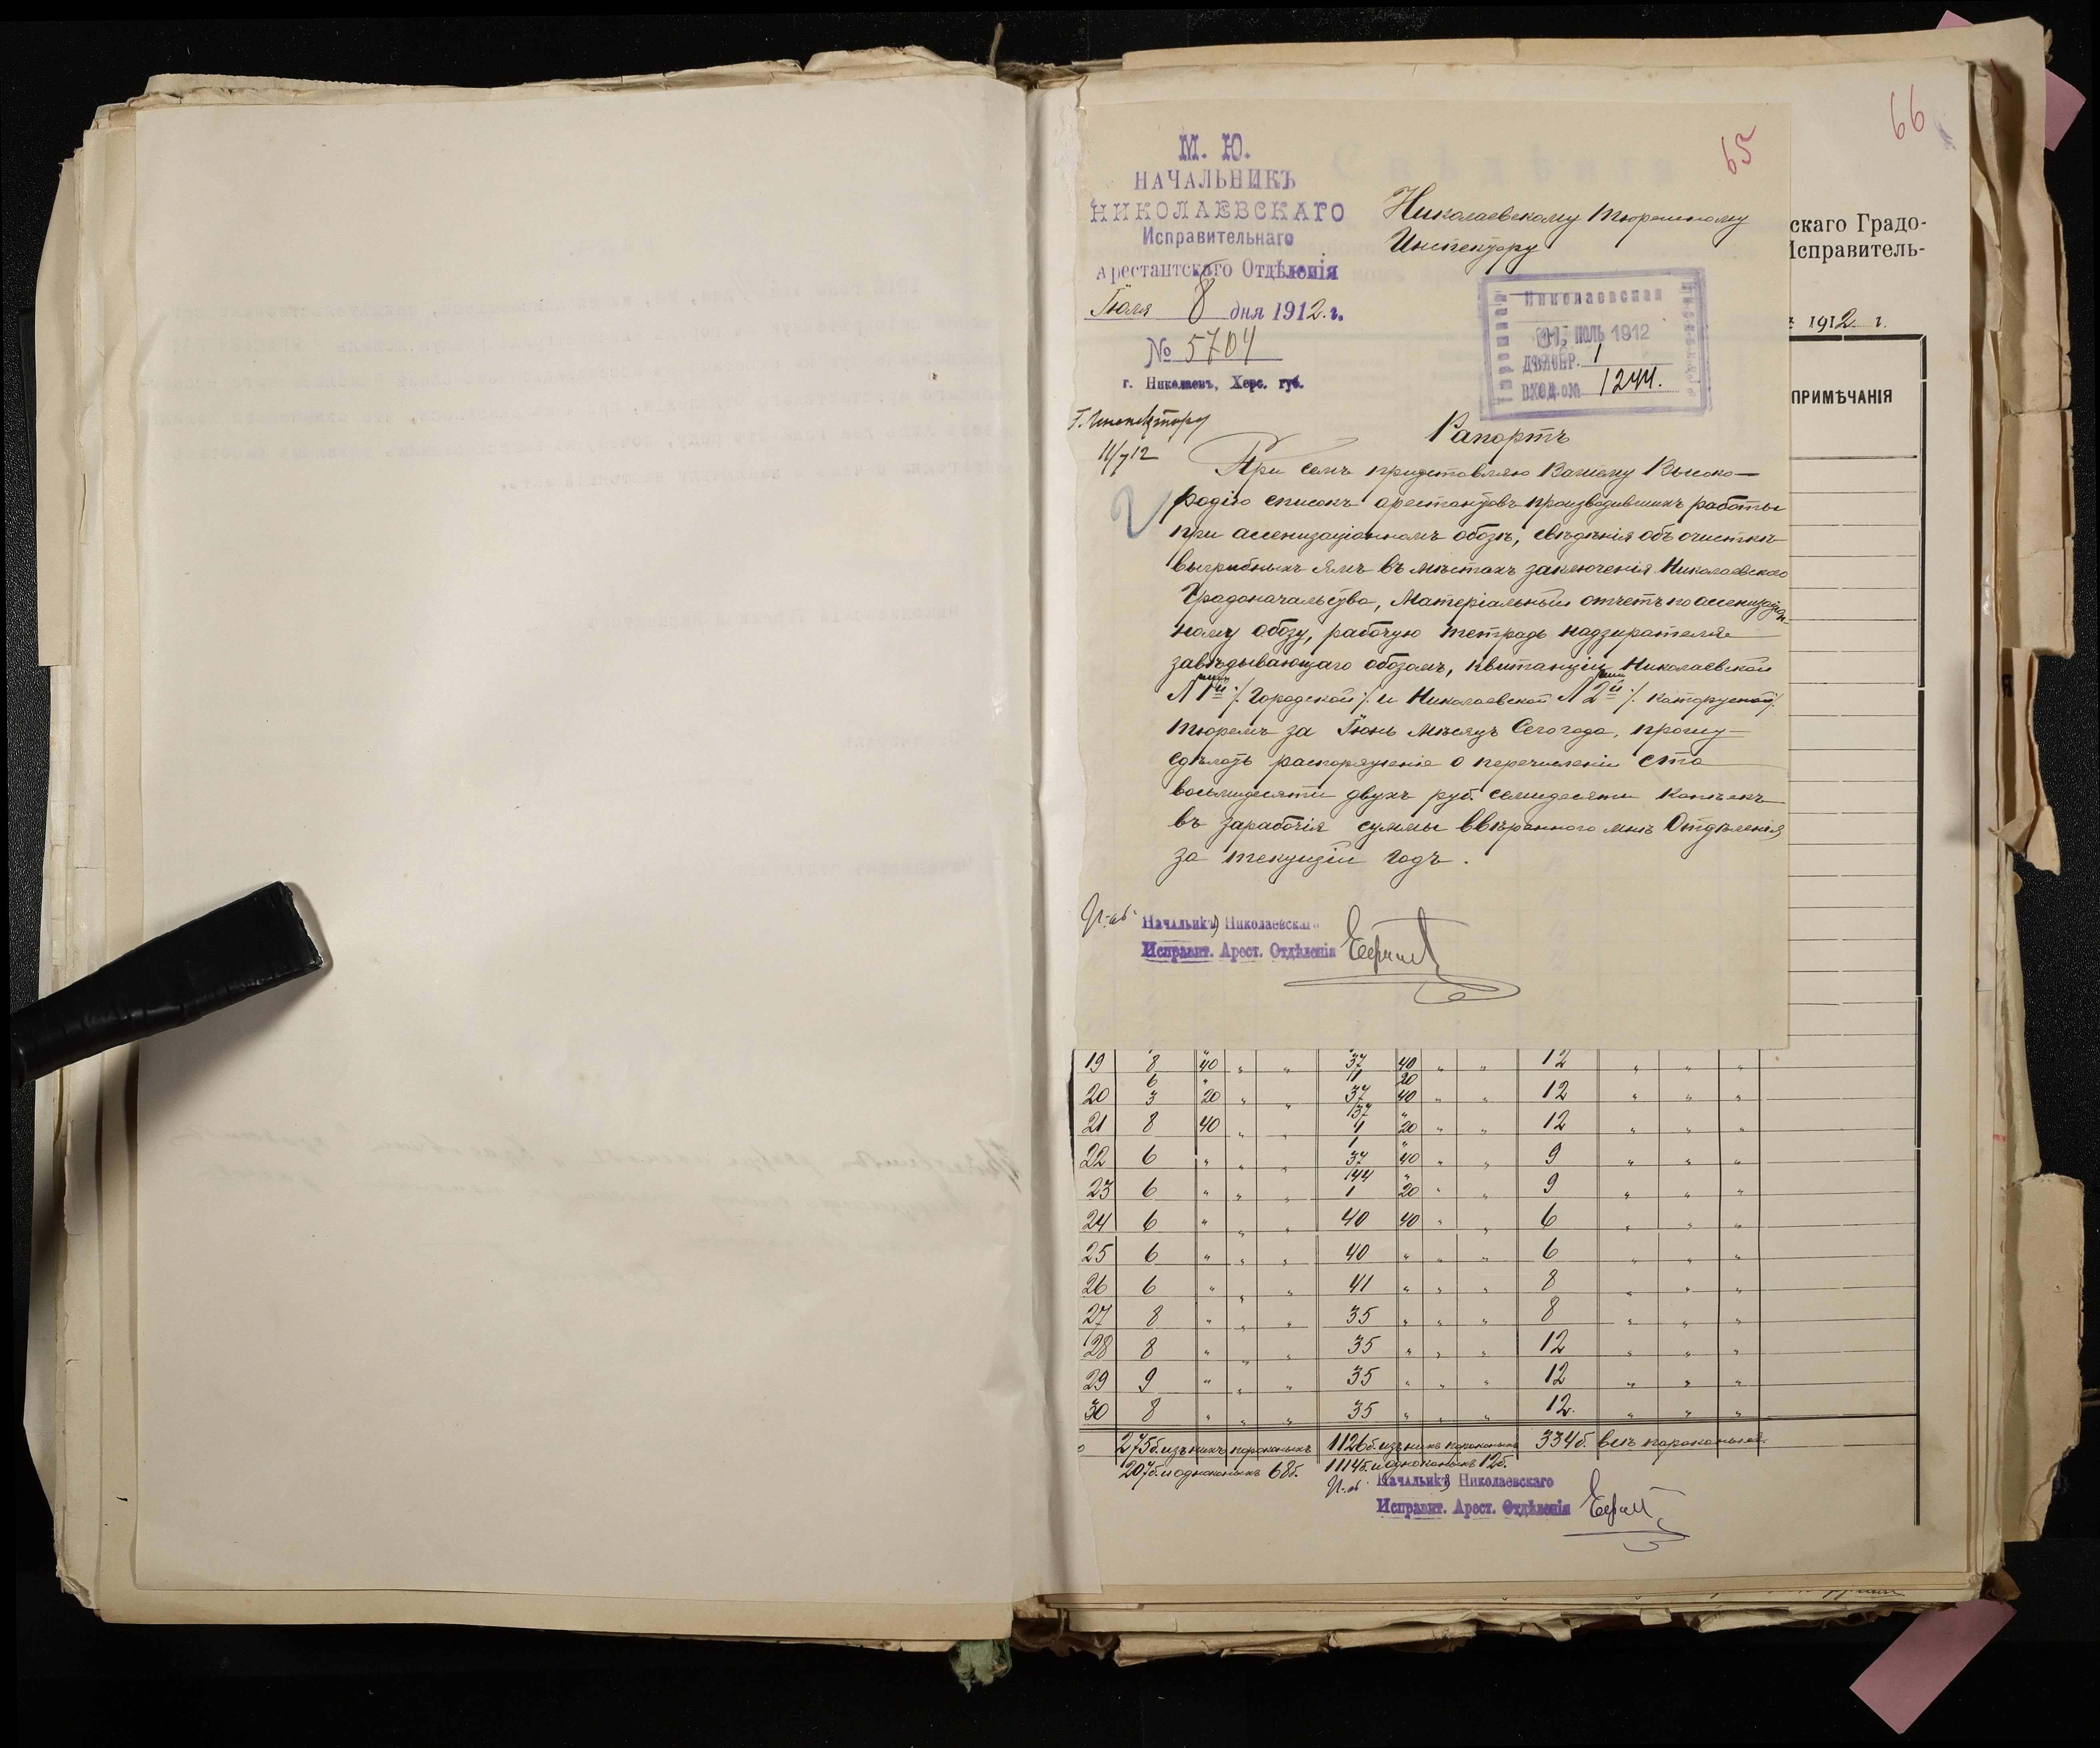 66
65
М. Ю.
НАЧАЛЬНИКЪ
НИКОЛАЕВСКАГО
Исправительнаго
Арестантскаго Отдѣленія
Іюля 8 дня 1912 г.
№ 5704
г. Николаевъ, Херс. губ.
Николаевскому Тюремному
Инспектору
Николаевская
ІЮЛЬ 1912
1
ВХОД. № 1244.
скаго Градо-
Исправитель-
1912 г.
ПРИМѢЧАНІЯ
Г. Инспектору
11/7 12
Рапортъ
При семъ представляю Вашему Высоко-
родію списокъ арестантовъ производившихъ работы
при ассенизаціонномъ обозѣ, свѣдѣнія объ очисткѣ
выгребныхъ ямъ въ мѣстахъ заключенія Николаевскаго
Градоначальства, Матеріальный отчетъ по ассенизацiон-
ному обозу, рабочую тетрадь надзирателя
завѣдывающаго обозомъ, квитанціи Николаевской
№ 1й /. Городской /. и Николаевской № 2й /. каторжной /.
тюремъ за Іюнь мѣсяцъ сего года, прошу
сдѣлать распоряженіе о перечисленіи ста
восьмидесяти двухъ руб. семидесяти копѣекъ
въ заработія суммы ввѣреннаго мнѣ Отдѣленія
за текущій годъ.
Начальникъ Николаевскаго
Исправит. Арест. Отдѣленія
19 8 40 " " 37 40 " " 12 " " "
6 " 11 20
20 3 20 " " 37 40 " " 12 " " "
137 "
21 8 40 " " 4 20 " " 12 " " "
1 "
22 6 " " " 37 40 " " 9 " " "
144 "
23 6 " " " 1 20 " " 9 " " "
24 6 " " " 40 40 " " 6 " " "
25 6 " " " 40 " " " 6 " " "
26 6 " " " 41 " " " 8 " " "
27 8 " " " 35 " " " 8 " " "
28 8 " " " 35 " " " 12 " " "
29 9 " " " 35 " " " 12 " " "
30 8 " " " 35 " " " 12. " " "
275б. изъ нихъ пароконныхъ 1126б. изъ нихъ пароконныхъ 334б. всѣ пароконныя.
207б. и одноконныхъ 68б. 1114б. и одноконныхъ 12б.
Начальникъ Николаевскаго
Исправит. Арест. Отдѣленія